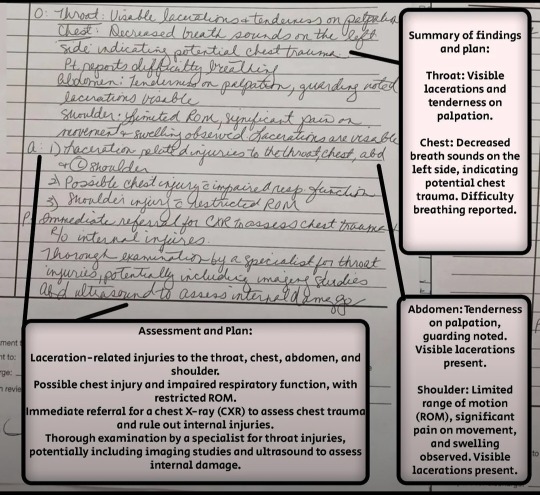 O: Throat: Visable lacerations & tenderness on palpation
Chest: Decreased breath sounds on the left
side indicating potential chest trauma.
Pt reports difficulty breathing
Abdomen: Tenderness on palpation, guarding noted
lacerations visable
Shoulder: Limited ROM, significant pain on
movement & swelling observed. Lacerations are visable
A: 1) Laceration related injuries to the throat, chest, abd
& L shoulder
2) Possible chest injury c impaired resp. function
3) Shoulder injury c restricted ROM
P: Immediate referral for CXR to assess chest trauma
R/o internal injures.
Thorough examination by a specialist for throat
injuries, potentially including imaging studies
Abd ultrasound to assess internal damage
Summary of findings
and plan:
Throat: Visible
lacerations and
tenderness on
palpation.
Chest: Decreased
breath sounds on the
left side, indicating
potential chest
trauma. Difficulty
breathing reported.
Abdomen: Tenderness
on palpation,
guarding noted.
Visible lacerations
present.
Shoulder: Limited
range of motion
(ROM), significant
pain on movement,
and swelling
observed. Visible
lacerations present.
Assessment and Plan:
Laceration-related injuries to the throat, chest, abdomen, and
shoulder.
Possible chest injury and impaired respiratory function, with
restricted ROM.
Immediate referral for a chest X-ray (CXR) to assess chest trauma
and rule out internal injuries.
Thorough examination by a specialist for throat injuries,
potentially including imaging studies and ultrasound to assess
internal damage.